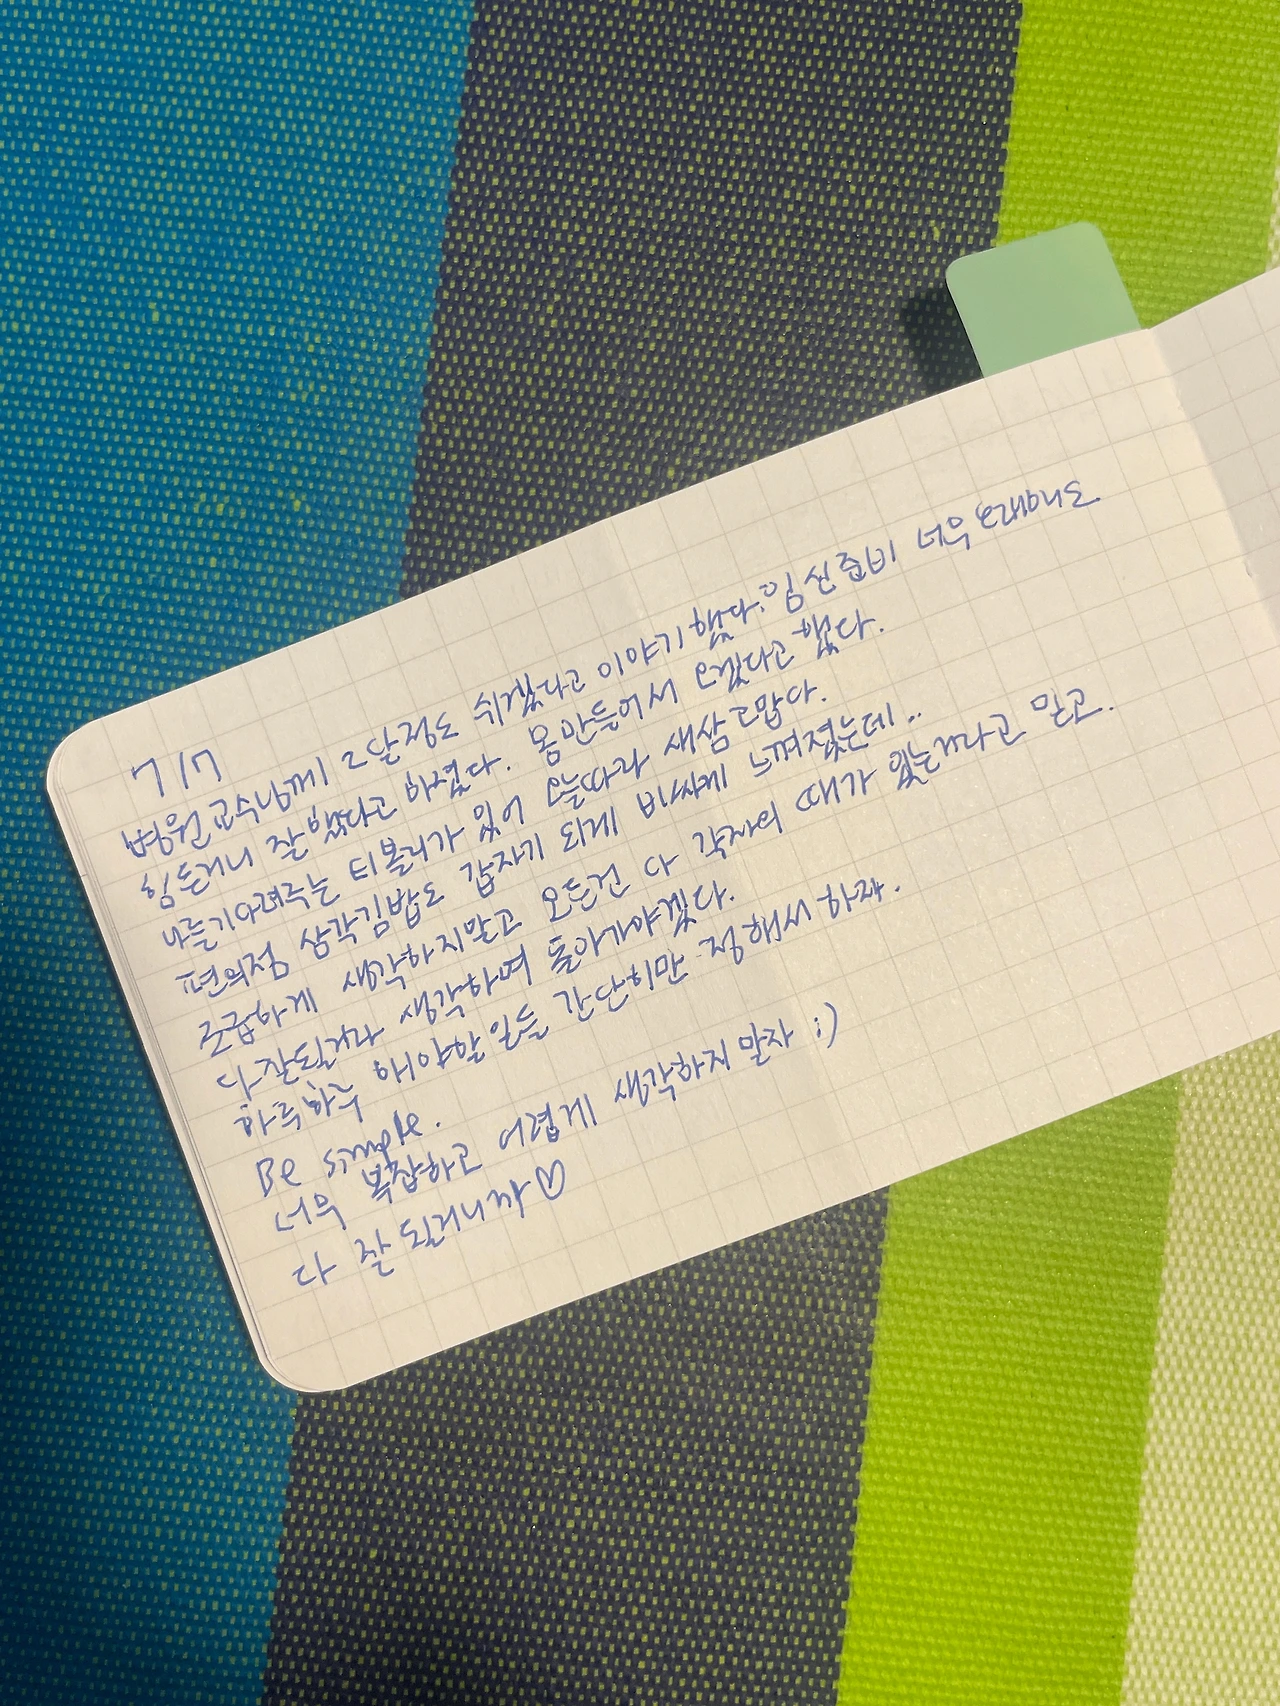 7/7
병원 교수님께 2달정도 쉬겠다고 이야기 했다. 임신준비 너무 오래하면
힘들거니 잘했다고 하셨다. 몸 만들어서 오겠다고 했다.
나를 기다려주는 티볼리가 있어 오늘따라 새삼 고맙다.
편의점 삼각김밥도 갑자기 되게 비싸게 느껴졌는데..
조급하게 생각하지말고 모든건 다 각자의 때가 있는거라고 믿고.
다 잘될거라 생각하며 돌아가야겠다.
하루하루 해야할 일들 간단히만 정해서 하자.
Be simple.
너무 복잡하고 어렵게 생각하지 말자 :)
다 잘 될거니까♡